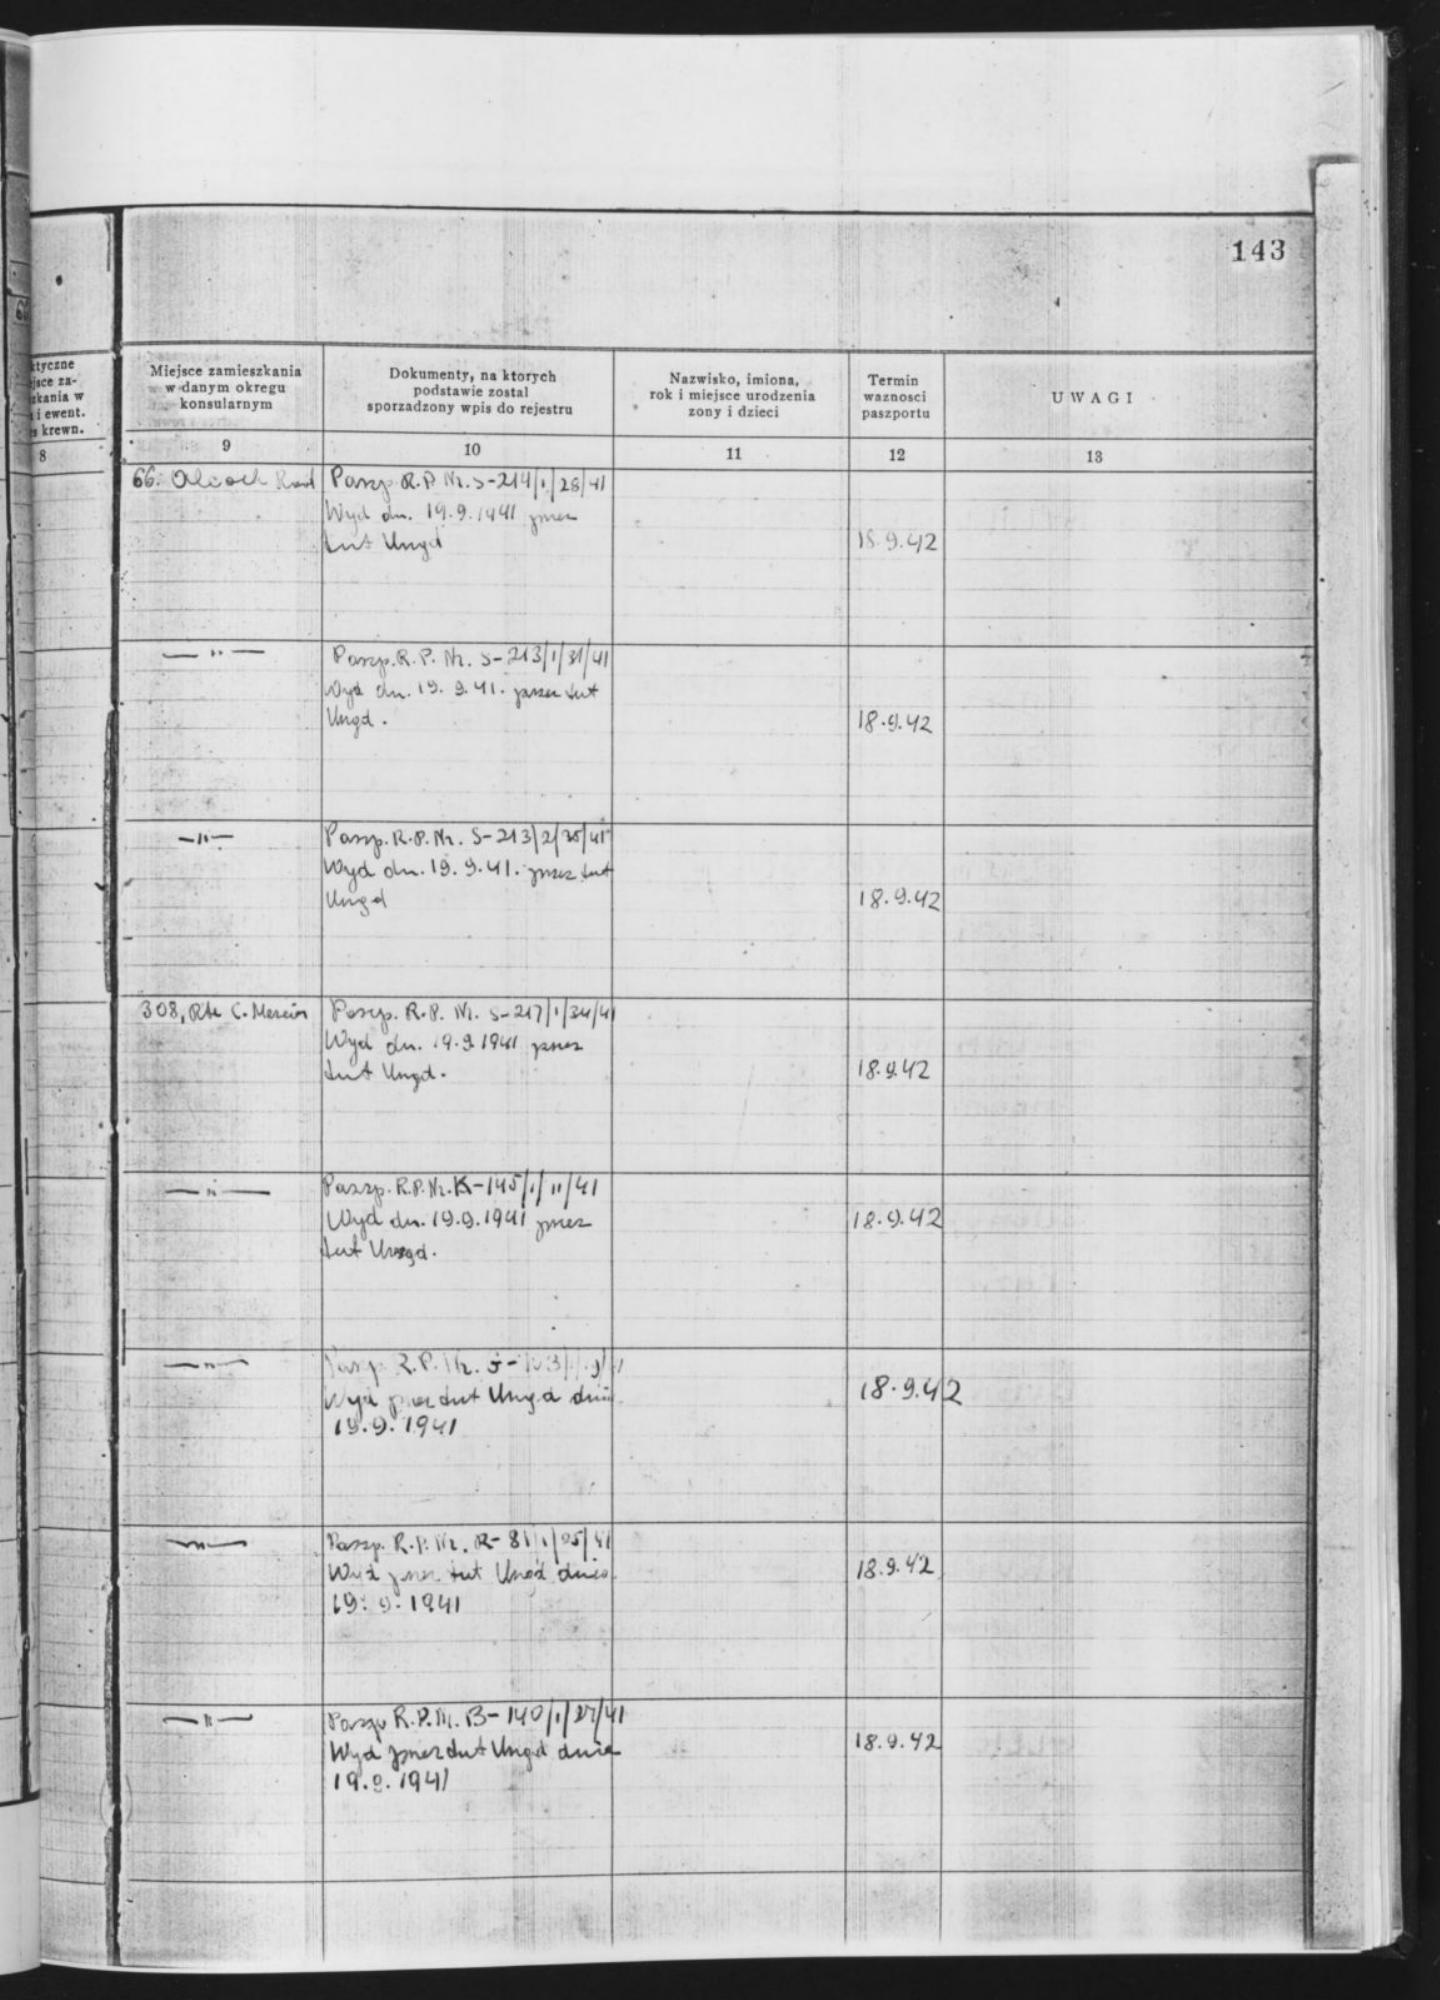 143
ktyczne
ejsce za-
szkania w
i ewent.
s krewn.
8
Miejsce zamieszkania
w danym okregu
konsularnym
Dokumenty, na ktorych
podstawie zostal
sporzadzony wpis do rejestru
Nazwisko, imiona,
rok i miejsce urodzenia
zony i dzieci
Termin
waznosci
paszportu
UWAGI
9
10
11
12
13
66. Alcock Road
Paszp. R.P. Nr. S-214/1/28/41
Wyd dn. 19.9.1941 przez
tut Urzęd
18.9.42
— " —
Paszp. R.P. Nr. S-213/1/31/41
Wyd dn. 19.9.41. przez tut
Urzęd.
18.9.42
— " —
Paszp. R.P. Nr. S-213/2/35/41
Wyd dn. 19.9.41. przez tut
Urzęd
18.9.42
308, Rte C. Mercier
Paszp. R.P. Nr. S-217/1/34/41
Wyd dn. 19.9.1941 przez
tut Urzęd.
18.9.42
— " —
Paszp. R.P. Nr. K-145/1/11/41
Wyd dn. 19.9.1941 przez
tut Urzęd.
18.9.42
— " —
Paszp. R.P. Nr.
Wyd przez tut Urzęd dnia
19.9.1941
18.9.42
— " —
Paszp. R.P. Nr. R-81/1/05/41
Wyd przez tut Urzęd dnia
19.9.1941
18.9.42
— " —
Paszp R.P. Nr. B-140/1/27/41
Wyd przez tut Urzęd dnia
19.9.1941
18.9.42